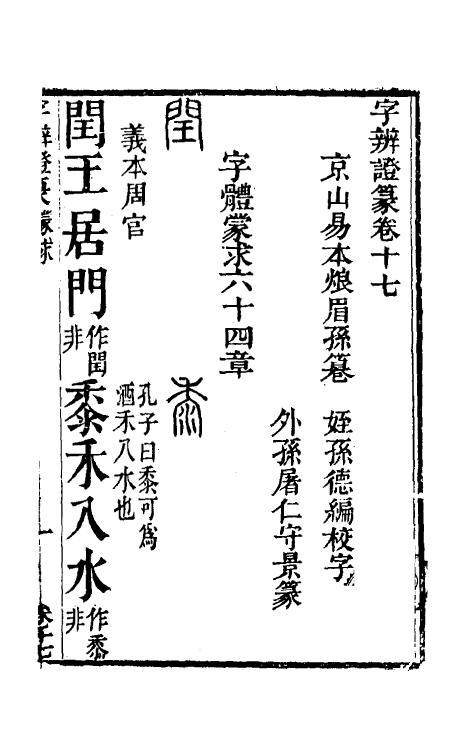 字辨證篆卷十七
京山易本烺眉孫篹　姪孫德編校字
外孫屠仁守景篆
字體蒙求六十四章
閏
黍
義本周官
孔子曰黍可爲
酒禾入水也
閏王居門
作閏
非
黍禾入水
作黍
非
字辨證篆蒙求
一
卷十七